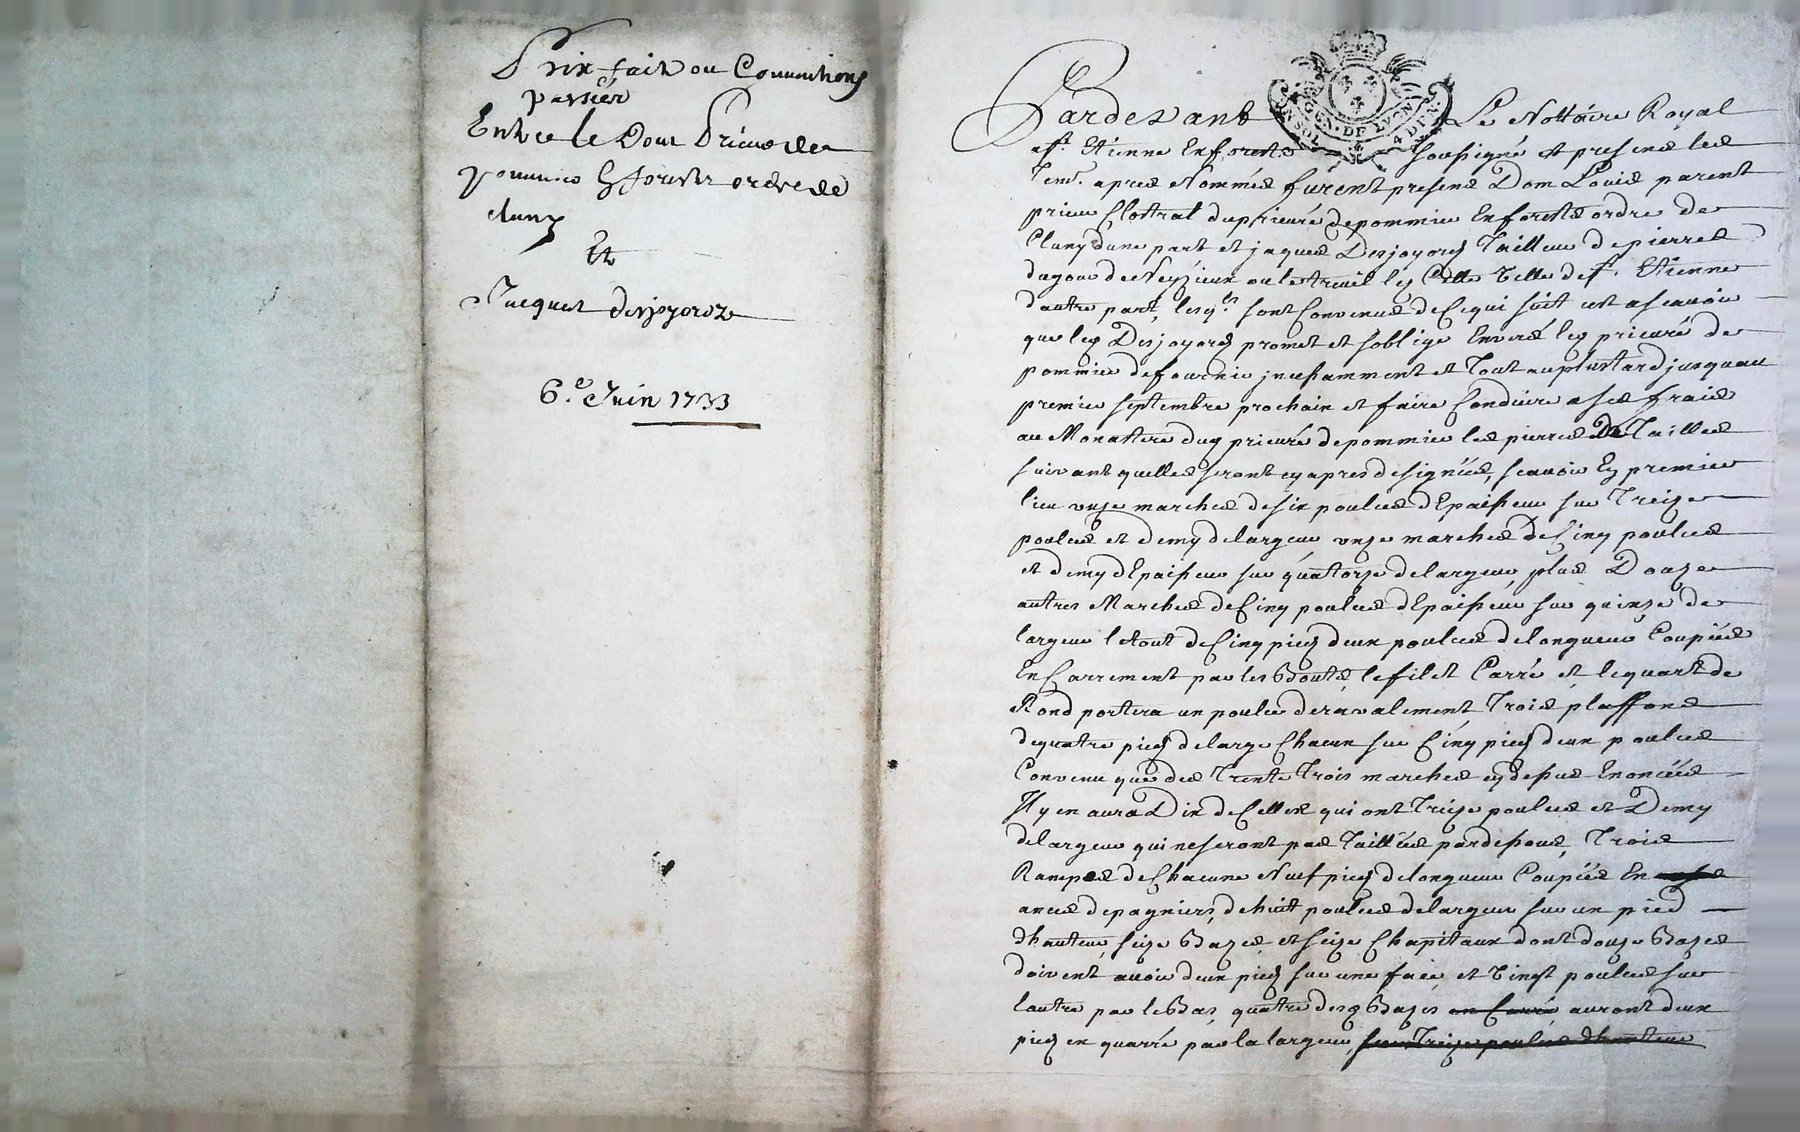 Prix fait ou Conventions
passées
Entre le Dom Prieur de
pommier En forest ordre de
cluny
Et
Jacques desjoyorez
6.e Juin 1733
GN. DE LYON
Pardevant Le Nottaire Royal
a St. Etienne En forests soussigné et presens les
tem. apres Nommés fûrent presens Dom Louis parent
prieur Clostral du prieuré de pommier En forests ordre de
Cluny d'une part et jaques Desjoyorez Tailleur de pierres
du lieu ley Ville de St. Etienne
d'autre part, lesq.ls sont Convenus de Ce qui suit cest a scauoir
que ley Desjoyorez promet et soblige Envers ley prieuré de
pommier de fournir incessamment et Tout au plustard jusquau
premier septembre prochain et faire Conduire a ses fraix
au Monastere dud prieuré de pommier les pierres De Tailles
suivant quelles seront cy apres designées, scauoir En premier
lieu onze marches de six pouces d'Epaisseur sur Treize
pouces et demy de largeur onze marches de Cinq pouces
et demy d'Epaisseur sur quatorze de largeur, plus Douze
autres Marches de Cinq pouces d'Epaisseur sur quinze de
largeur le tout de Cinq pieds deux pouces de longueur Coupées
En Carrement par les Bouts, le filet Carré et le quart de
Rond portera un pouce de ravalement Trois plaffons
de quatre pieds de large Chacun sur Cinq pieds deux pouces
Convenu que des Trente Trois marches cy dessus Enoncées
Il y en aura Dix de Celles qui ont Treize pouces et Demy
de largeur qui ne seront pas Taillées par dessous, Trois
Rampes de Chacune Neuf pieds de longueur Coupées En
ances de pagniers, de huit pouces de largeur sur un pied
d'hauteur, seize Bazes et seize Chapitaux dont douze Bazes
doivent auoir deux pieds sur une face et Vingt pouces sur
lautre par le Bas, quatre desd Bazes en Carré auront deux
pieds en quarré par la largeur, sur Treize pouces d'hauteur